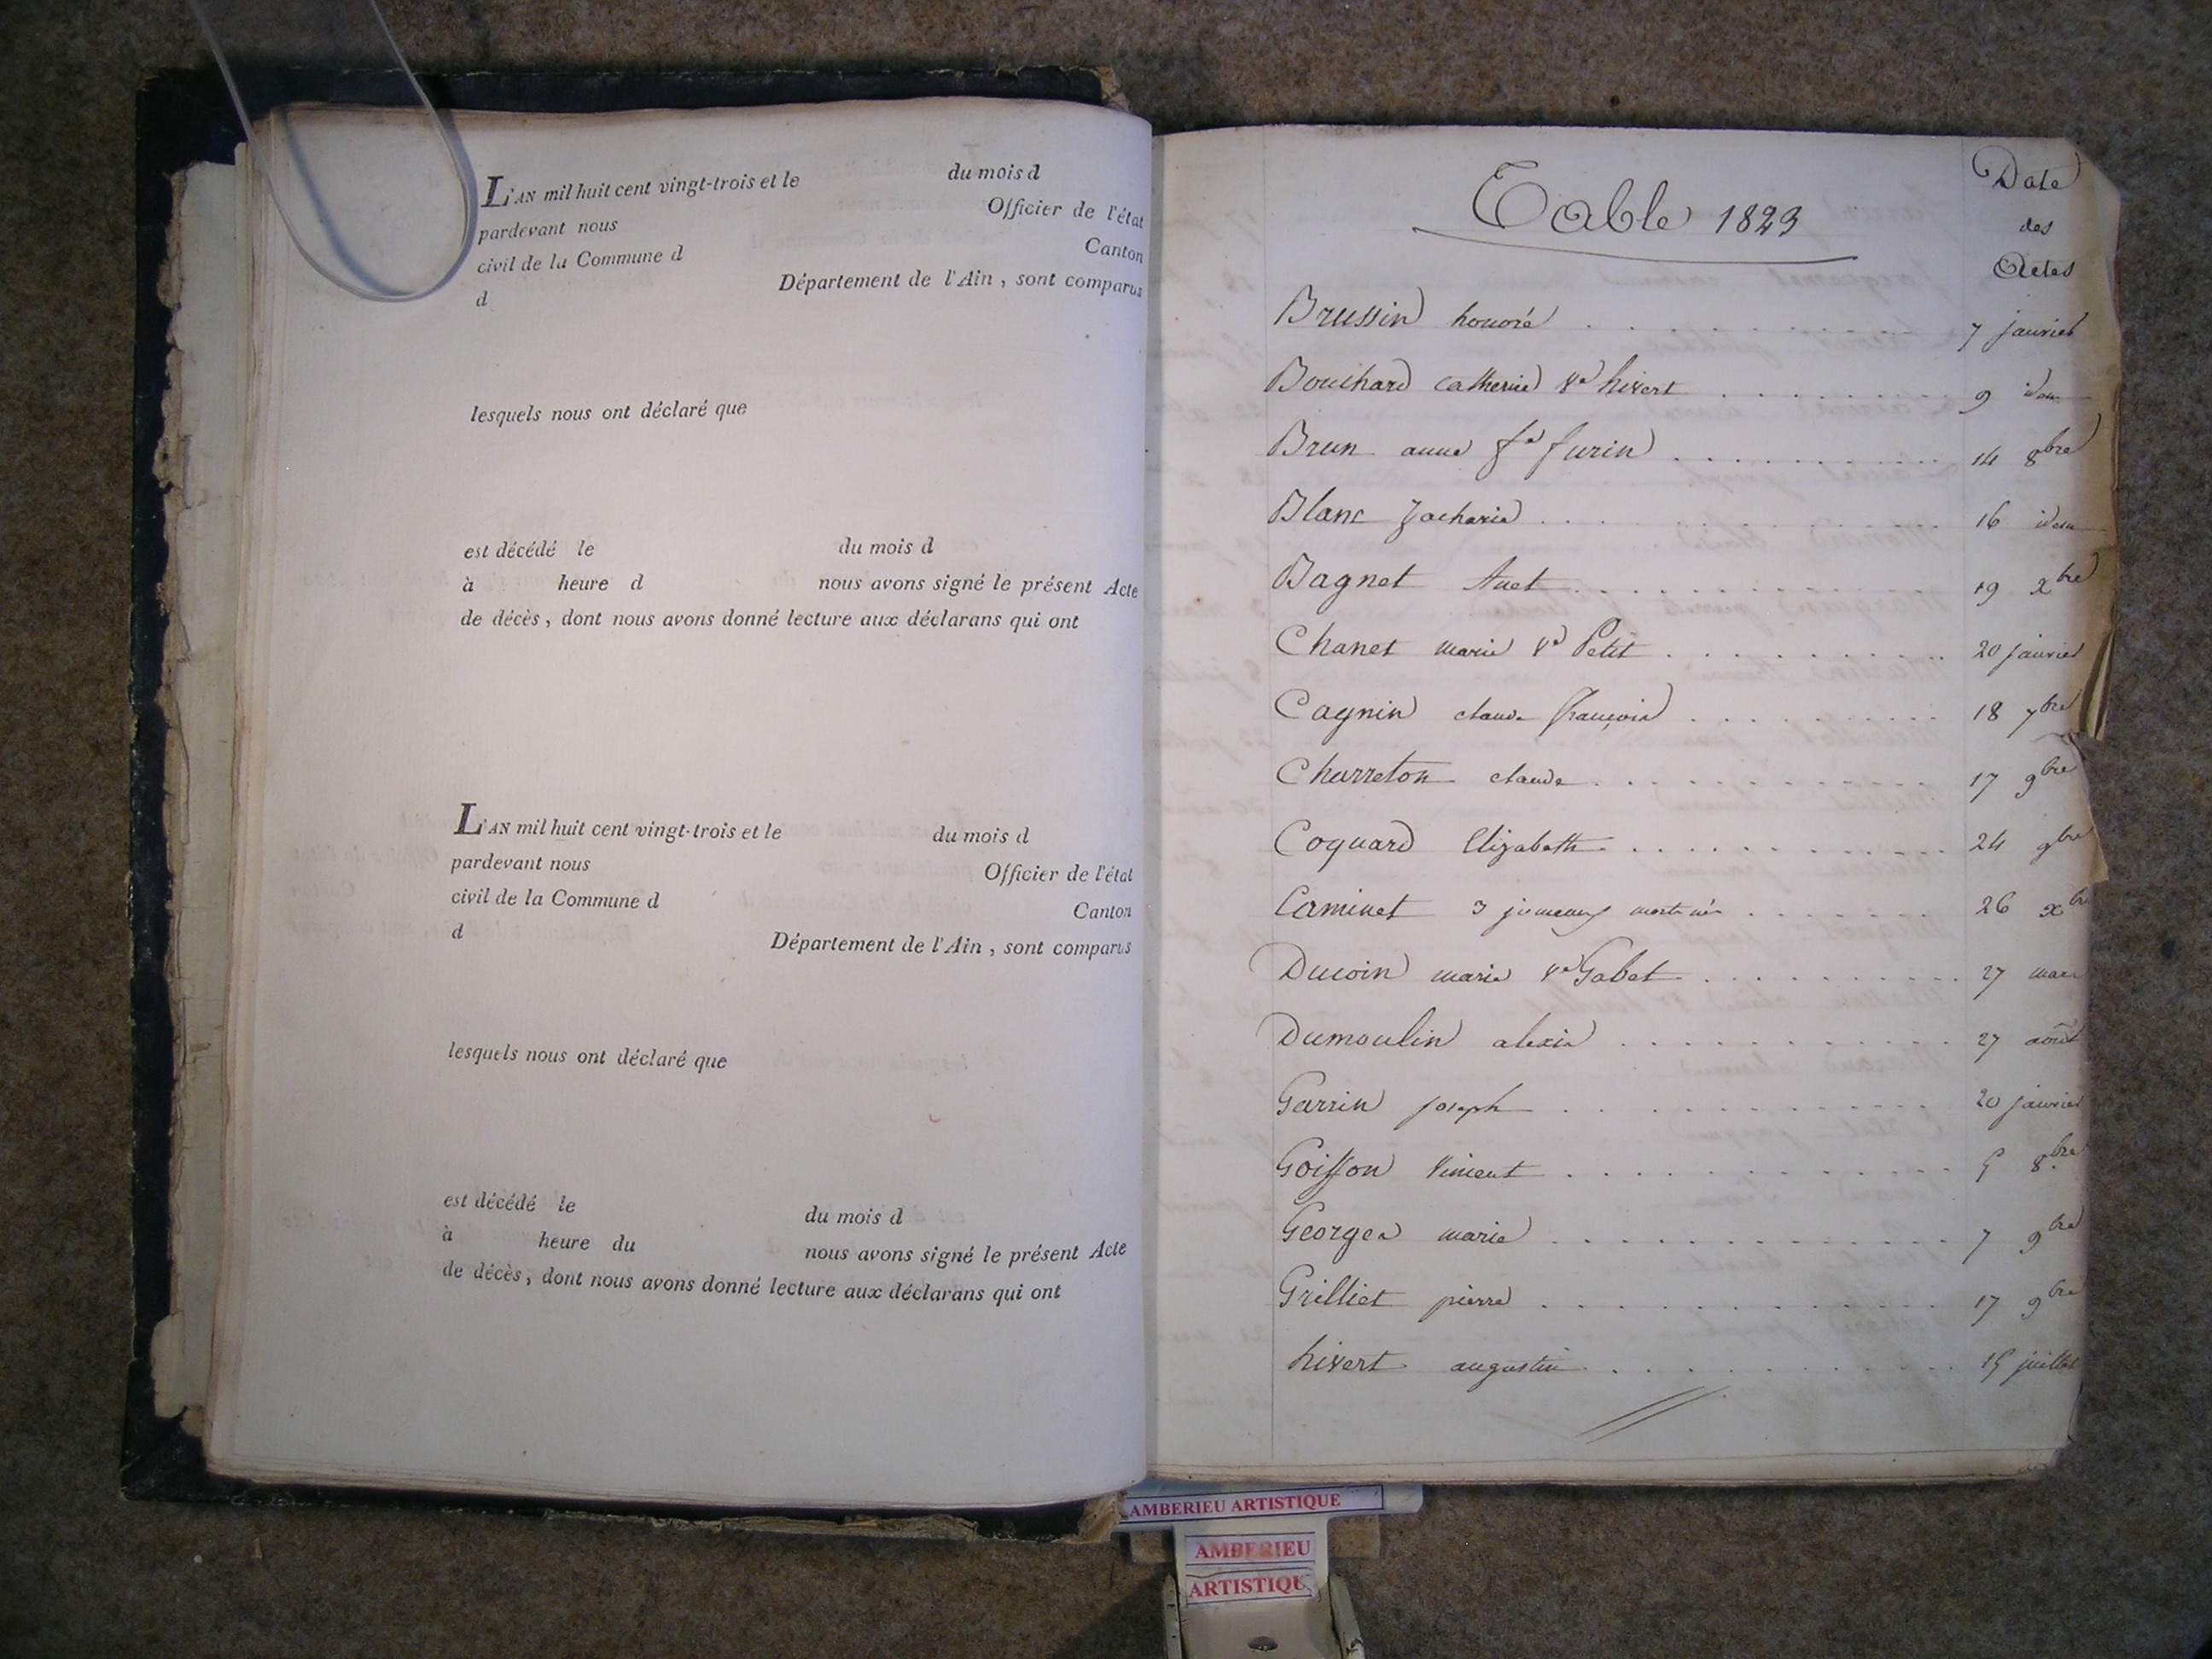 L'AN mil huit cent vingt-trois et le du mois d
pardevant nous Officier de l'état
civil de la Commune d Canton
d Département de l'Ain , sont comparus
lesquels nous ont déclaré que
est décédé le du mois d
à heure d nous avons signé le présent Acte
de décès , dont nous avons donné lecture aux déclarans qui ont
L'AN mil huit cent vingt-trois et le du mois d
pardevant nous Officier de l'état
civil de la Commune d Canton
d Département de l'Ain , sont comparus
lesquels nous ont déclaré que
est décédé le du mois d
à heure du nous avons signé le présent Acte
de décès , dont nous avons donné lecture aux déclarans qui ont
Table 1823
Date
des
Actes
Brussin honoré 7 janvier
Bouchard catherine Ve hivert 9 idem
Brun anne fe furin 14 8bre
Blanc Zacharie 16 idem
Bagnet 19 xbre
Chanet marie Ve Petit 20 janvier
Cagnin claude françois 18 7bre
Charreton claude 17 9bre
Coquard Elizabeth 24 9bre
Caminet 3 jumeaux mort nés 26 xbre
Ducoin marie Ve Gabet 27 mars
Dumoulin alexis 27 août
Garrin joseph 20 janvier
Goiffon Vincent 5 8bre
Georges marie 7 9bre
Grilliet pierre 17 9bre
hivert augustin 15 juillet
AMBERIEU ARTISTIQUE
AMBERIEU
ARTISTIQUE